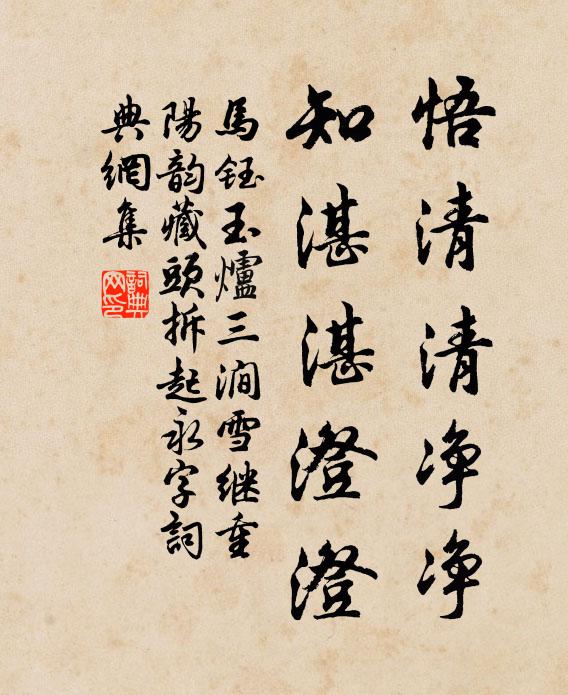 悟清清净净
知湛湛澄澄
馬鈺玉爐三澗雪继重
陽韵藏頭拆起永字詞
典網集
詞典
网印